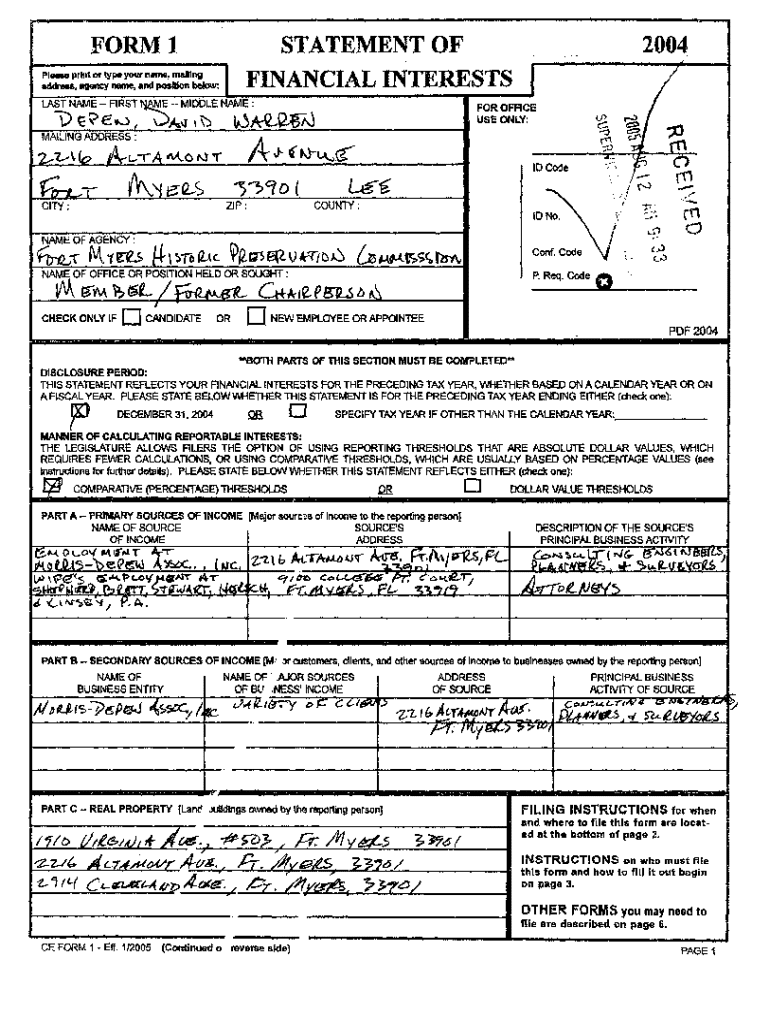 FORM 1 STATEMENT OF 2004
FINANCIAL INTERESTS
Please print or type your name, mailing
address, agency name, and position below:
LAST NAME -- FIRST NAME -- MIDDLE NAME :
DEPEW, DAVID WARREN
MAILING ADDRESS :
2216 ALTAMONT AVENUE
FORT MYERS 33901 LEE
CITY : ZIP : COUNTY :
NAME OF AGENCY :
FORT MYERS HISTORIC PRESERVATION COMMISSION
NAME OF OFFICE OR POSITION HELD OR SOUGHT :
MEMBER / FORMER CHAIRPERSON
CHECK ONLY IF CANDIDATE OR NEW EMPLOYEE OR APPOINTEE
FOR OFFICE
USE ONLY:
ID Code
ID No.
Conf. Code
P. Req. Code
RECEIVED
2005 AUG 12 AM 9:33
PDF 2004
**BOTH PARTS OF THIS SECTION MUST BE COMPLETED**
DISCLOSURE PERIOD:
THIS STATEMENT REFLECTS YOUR FINANCIAL INTERESTS FOR THE PRECEDING TAX YEAR, WHETHER BASED ON A CALENDAR YEAR OR ON
A FISCAL YEAR. PLEASE STATE BELOW WHETHER THIS STATEMENT IS FOR THE PRECEDING TAX YEAR ENDING EITHER (check one):
X DECEMBER 31, 2004 OR SPECIFY TAX YEAR IF OTHER THAN THE CALENDAR YEAR:
MANNER OF CALCULATING REPORTABLE INTERESTS:
THE LEGISLATURE ALLOWS FILERS THE OPTION OF USING REPORTING THRESHOLDS THAT ARE ABSOLUTE DOLLAR VALUES, WHICH
REQUIRES FEWER CALCULATIONS, OR USING COMPARATIVE THRESHOLDS, WHICH ARE USUALLY BASED ON PERCENTAGE VALUES (see
instructions for further details). PLEASE STATE BELOW WHETHER THIS STATEMENT REFLECTS EITHER (check one):
X COMPARATIVE (PERCENTAGE) THRESHOLDS OR DOLLAR VALUE THRESHOLDS
PART A -- PRIMARY SOURCES OF INCOME [Major sources of income to the reporting person]
NAME OF SOURCE SOURCE'S DESCRIPTION OF THE SOURCE'S
OF INCOME ADDRESS PRINCIPAL BUSINESS ACTIVITY
EMPLOYMENT AT
MORRIS-DEPEW ASSOC., INC. 2216 ALTAMONT AVE. FT. MYERS, FL 33901 CONSULTING ENGINEERS,
PLANNERS, & SURVEYORS
WIFE'S EMPLOYMENT AT 9100 COLLEGE PT. COURT,
BRETT, STEWART, FT. MYERS, FL 33919 ATTORNEYS
& KINSEY, P.A.
PART B -- SECONDARY SOURCES OF INCOME [M or customers, clients, and other sources of income to businesses owned by the reporting person]
NAME OF NAME OF AJOR SOURCES ADDRESS PRINCIPAL BUSINESS
BUSINESS ENTITY OF BU NESS' INCOME OF SOURCE ACTIVITY OF SOURCE
MORRIS-DEPEW ASSOC, INC VARIETY OF CLIENTS 2216 ALTAMONT AVE. CONSULTING ENGINEERS,
FT. MYERS 33901 PLANNERS, & SURVEYORS
PART C -- REAL PROPERTY [Land uildings owned by the reporting person]
1910 VIRGINIA AVE., #503, FT. MYERS 33901
2216 ALTAMONT AVE., FT. MYERS, 33901
2914 CLEVELAND AVE., FT. MYERS, 33901
FILING INSTRUCTIONS for when
and where to file this form are locat-
ed at the bottom of page 2.
INSTRUCTIONS on who must file
this form and how to fill it out begin
on page 3.
OTHER FORMS you may need to
file are described on page 6.
CE FORM 1 - Eff. 1/2005 (Continued o reverse side)
PAGE 1